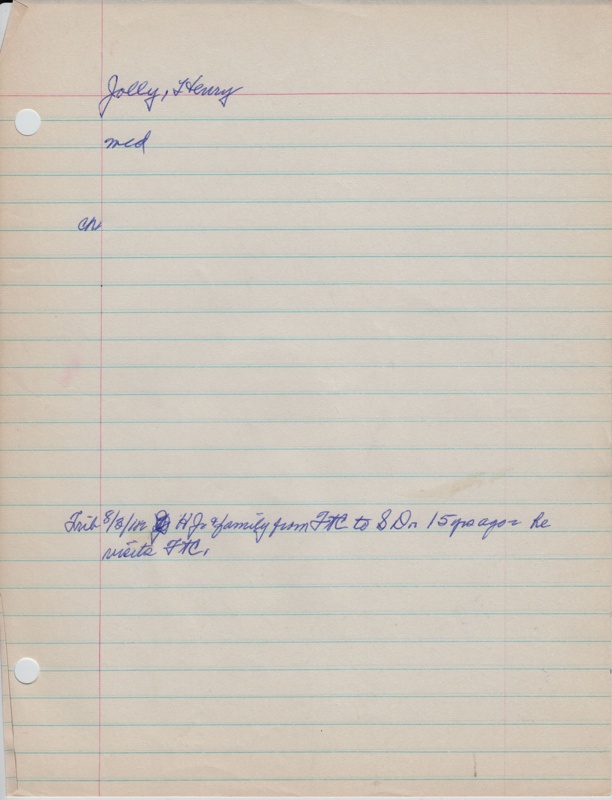 Jolly, Henry
med
ch
Trib 8/3/ H J & family from Ft C to S D 15 yrs ago - he
visits Ft C.